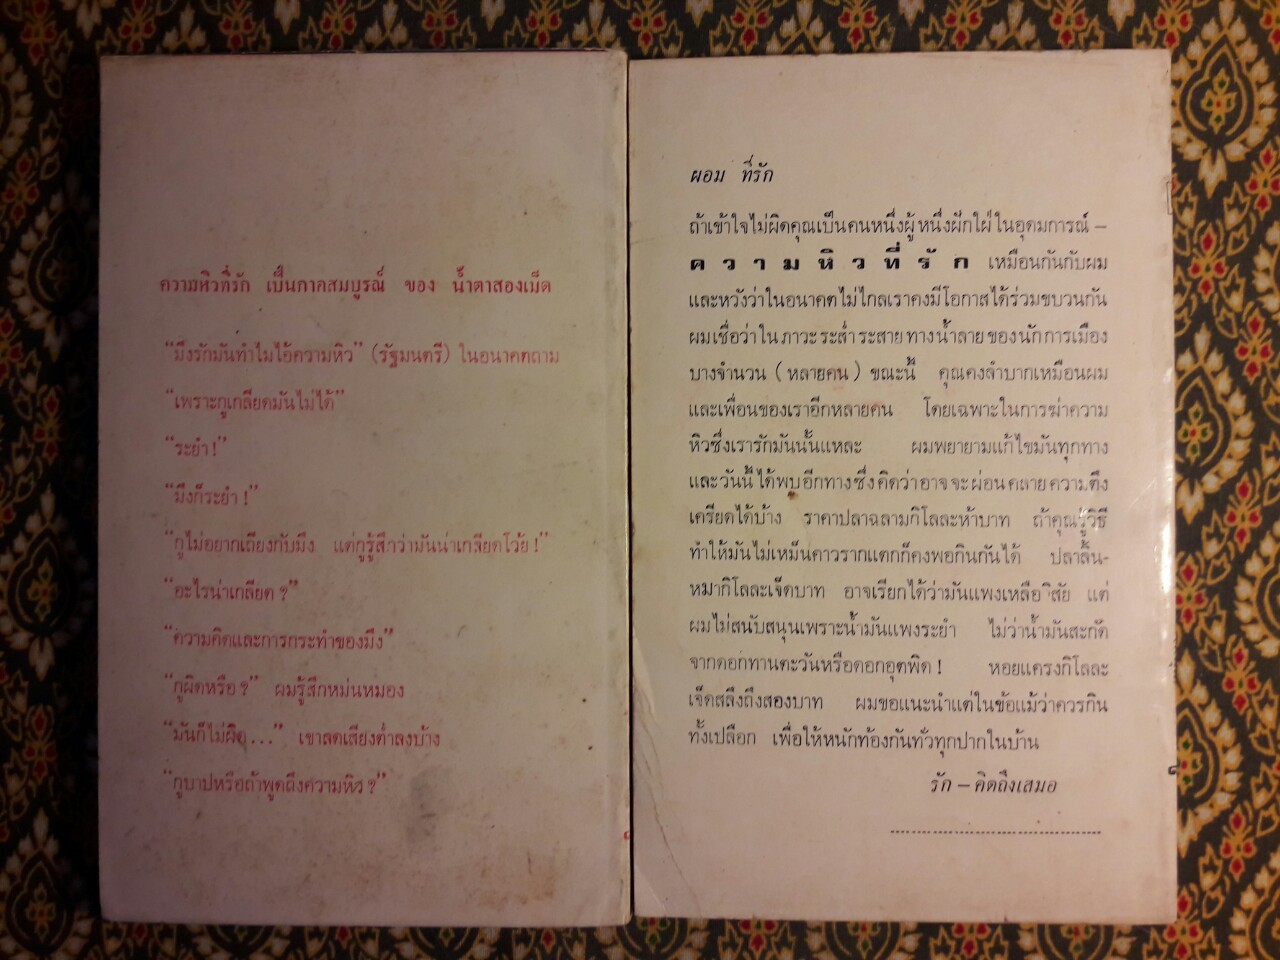 ความหิวที่รัก เป็นภาคสมบูรณ์ ของ น้ำตาสองเม็ด
“มึงรักมันทำไมไอ้ความหิว” (รัฐมนตรี) ในอนาคตถาม
“เพราะกูเกลียดมันไม่ได้”
“ระยำ!”
“มึงก็ระยำ!”
“กูไม่อยากเถียงกับมึง แต่กูรู้สึกว่ามันน่าเกลียดโว้ย!”
“อะไรน่าเกลียด?”
“ความคิดและการกระทำของมึง”
“กูผิดหรือ?” ผมรู้สึกหม่นหมอง
“มันก็ไม่ผิด...” เขาลดเสียงต่ำลงบ้าง
“กูบาปหรือถ้าพูดถึงความหิว?”
ผอม ที่รัก
ถ้าเข้าใจไม่ผิดคุณเป็นคนหนึ่งผู้หนึ่งฝักใฝ่ในอุดมการณ์ –
ความหิวที่รัก เหมือนกันกับผม
และหวังว่าในอนาคตไม่ไกลเราคงมีโอกาสได้ร่วมขบวนกัน
ผมเชื่อว่าในภาวะระส่ำระสายทางน้ำลายของนักการเมือง
บางจำนวน (หลายคน) ขณะนี้ คุณคงลำบากเหมือนผม
และเพื่อนของเราอีกหลายคน โดยเฉพาะในการฆ่าความ
หิวซึ่งเรารักมันนั้นแหละ ผมพยายามแก้ไขมันทุกทาง
และวันนี้ได้พบอีกทางซึ่งคิดว่าอาจจะผ่อนคลายความตึง
เครียดได้บ้าง ราคาปลาฉลามกิโลละห้าบาท ถ้าคุณรู้วิธี
ทำให้มันไม่เหม็นคาวรากแตกก็คงพอกินกันได้ ปลาลิ้น-
หมากิโลละเจ็ดบาท อาจเรียกได้ว่ามันแพงเหลือวิสัย แต่
ผมไม่สนับสนุนเพราะน้ำมันแพงระยำ ไม่ว่าน้ำมันสะกัด
จากดอกทานตะวันหรือดอกอุตพิด! หอยแครงกิโลละ
เจ็ดสลึงถึงสองบาท ผมขอแนะนำแต่ในข้อแม้ว่าควรกิน
ทั้งเปลือก เพื่อให้หนักท้องกันทั่วทุกปากในบ้าน
รัก – คิดถึงเสมอ